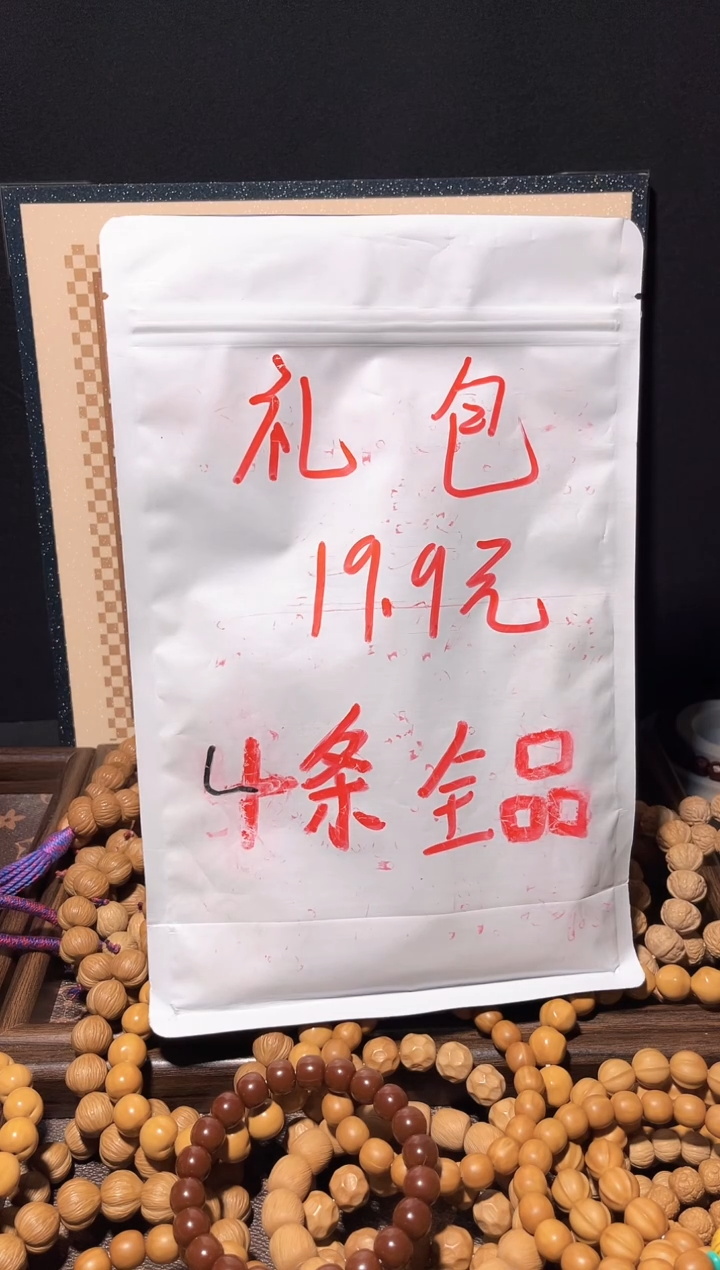 礼包
19.9元
4条全品